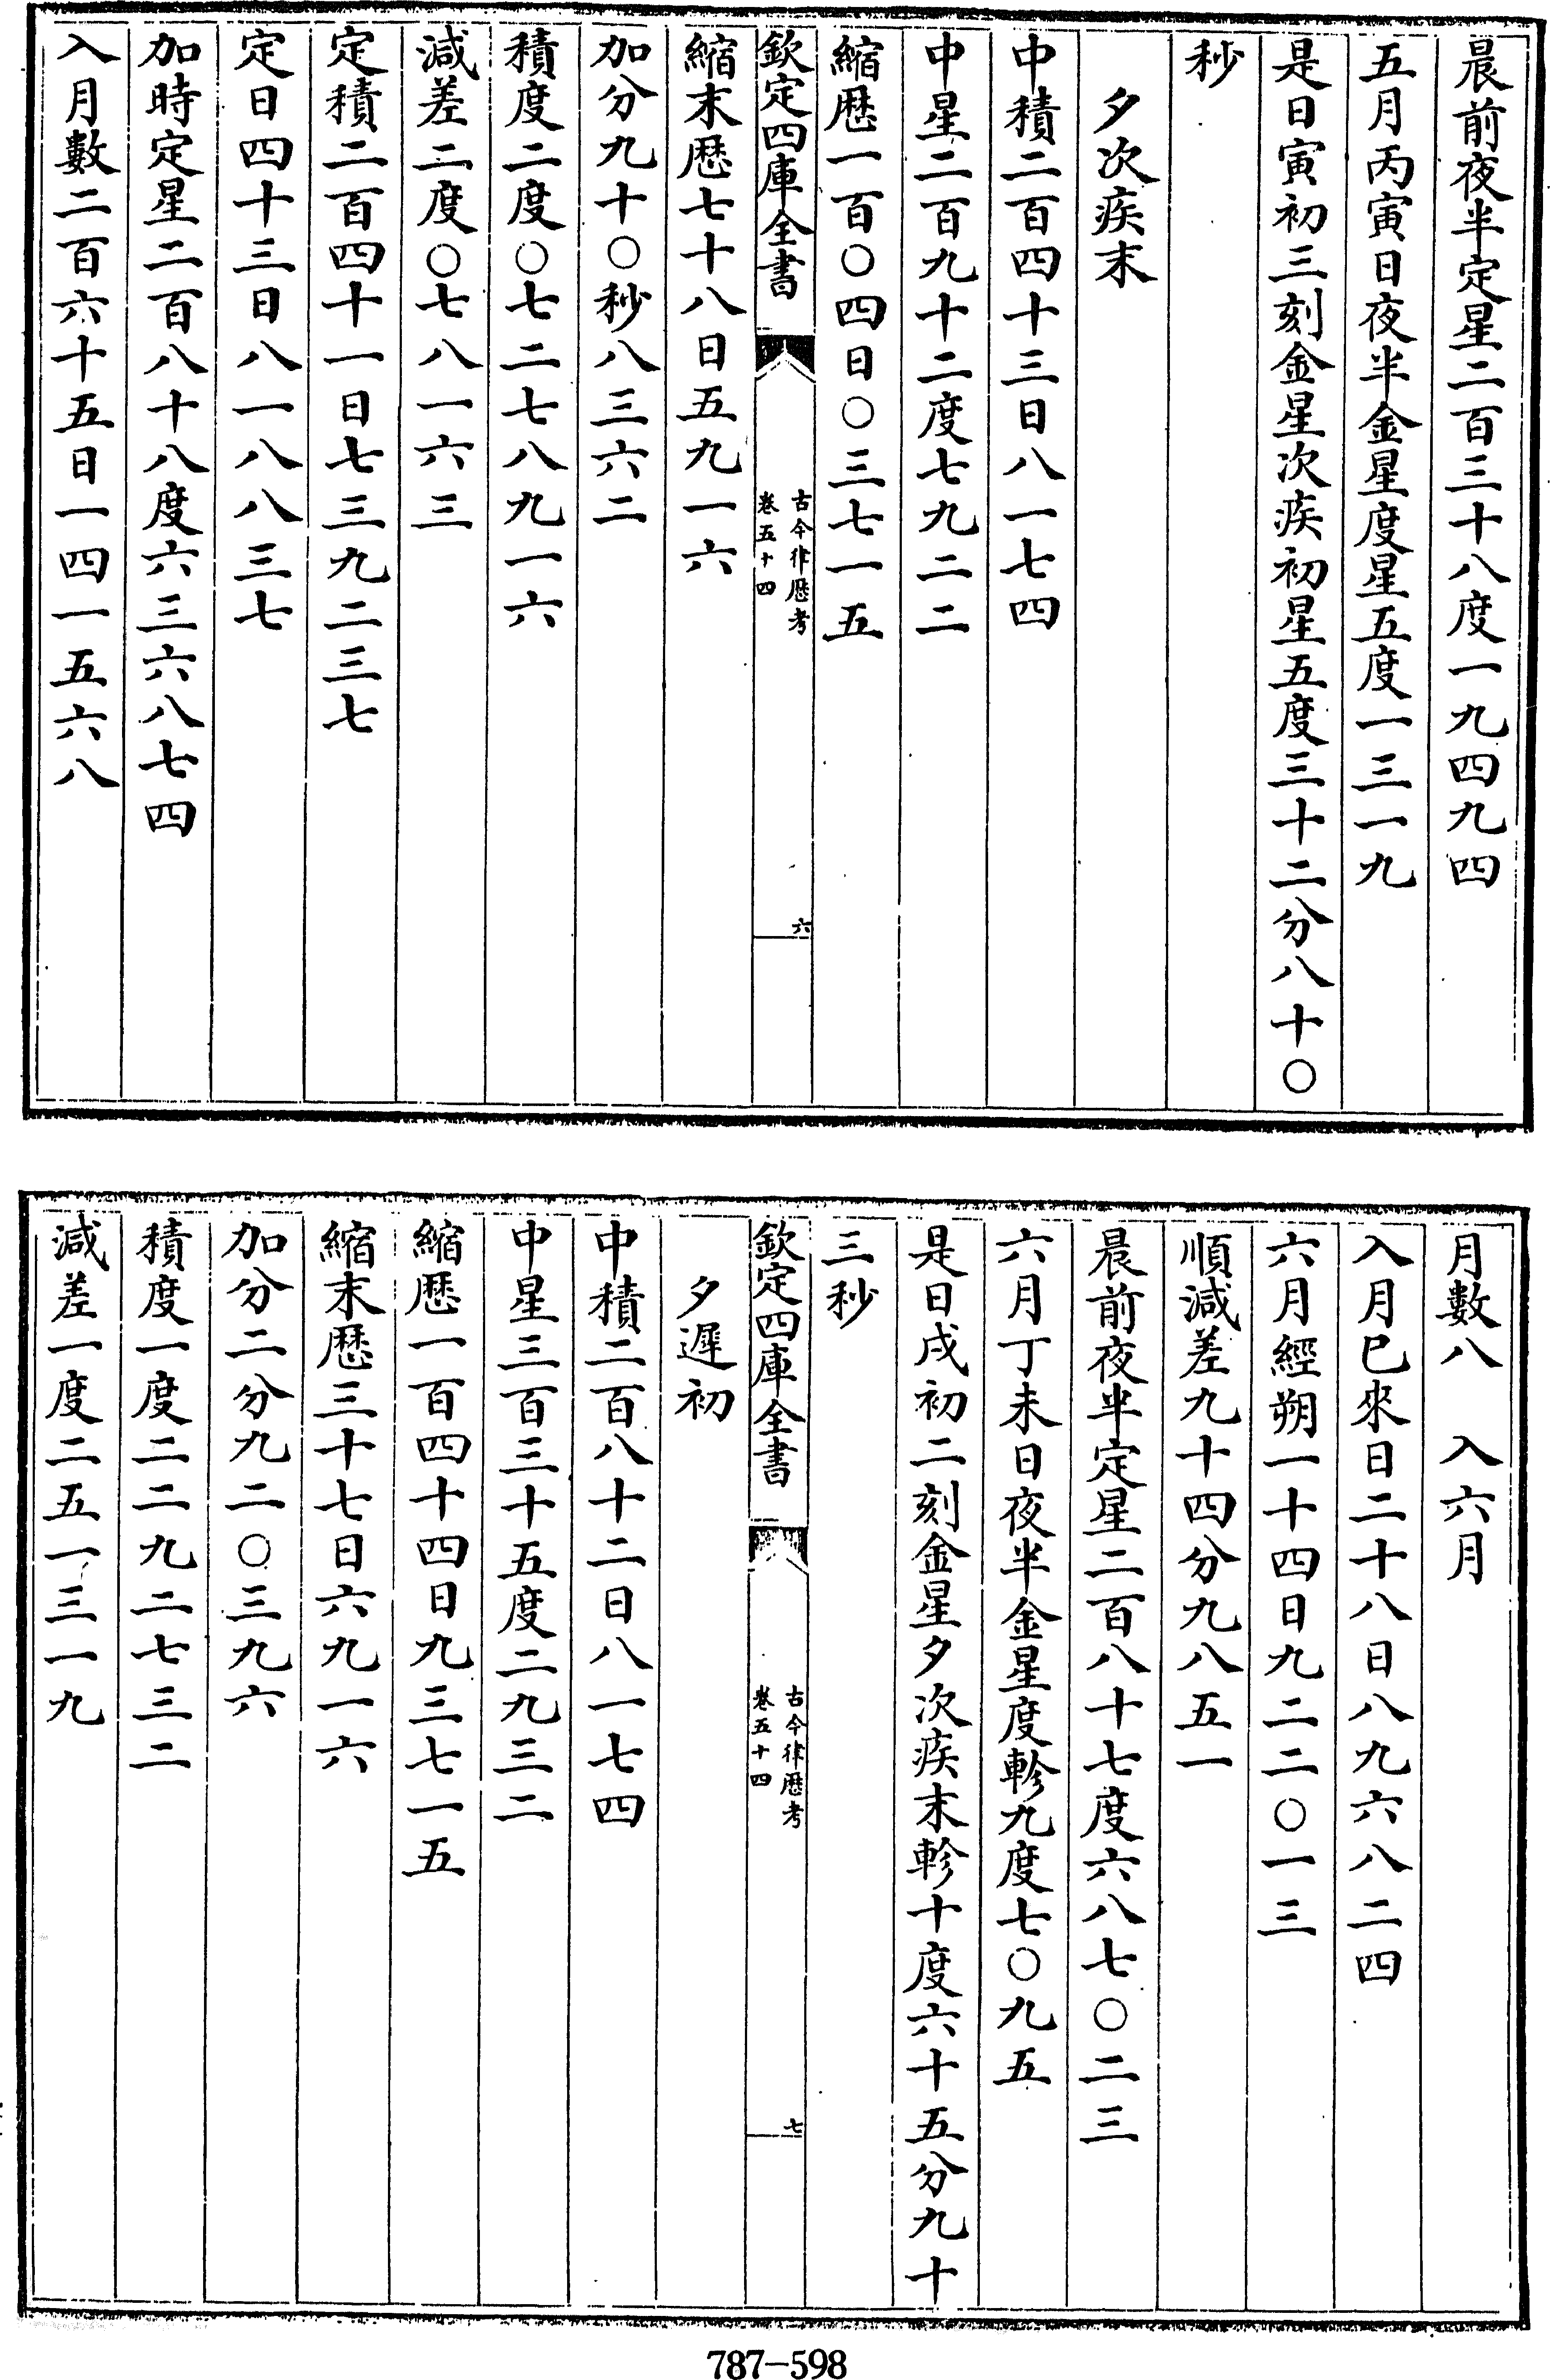 晨前夜半定星二百三十八度一九四九四
五月丙寅日夜半金星度星五度一三一九
是日寅初三刻金星次疾初星五度三十二分八十〇
秒
夕次疾末
中積二百四十三日八一七四
中星二百九十二度七九二二
縮歴一百〇四日〇三七一五
欽定四庫全書
古今律歴考
卷五十四
六
縮末歴七十八日五九一六
加分九十〇秒八三六二
積度二度〇七二七八九一六
減差二度〇七八一六三
定積二百四十一日七三九二三七
定日四十三日八一八八三七
加時定星二百八十八度六三六八七四
入月數二百六十五日一四一五六八
月數八 入六月
入月已來日二十八日八九六八二四
六月經朔一十四日九二二〇一三
順減差九十四分九八五一
晨前夜半定星二百八十七度六八七〇二三
六月丁未日夜半金星度軫九度七〇九五
是日戌初二刻金星夕次疾末軫十度六十五分九十
三秒
欽定四庫全書
古今律歴考
卷五十四
七
夕遲初
中積二百八十二日八一七四
中星三百三十五度二九三二
縮歴一百四十四日九三七一五
縮末歴三十七日六九一六
加分二分九二〇三九六
積度一度二二九二七三二
減差一度二五一三一九
787-598